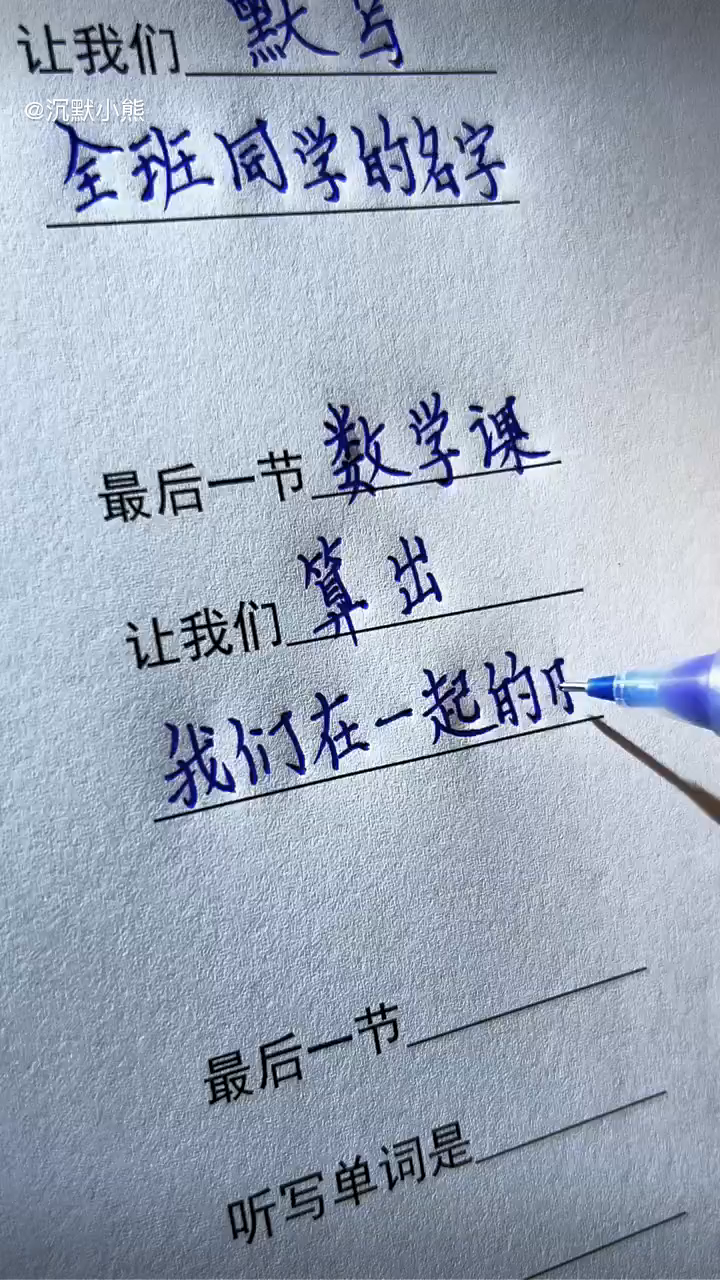 让我们 默写
@沉默小熊
全班同学的名字
最后一节 数学课
让我们 算出
我们在一起的
最后一节
听写单词是